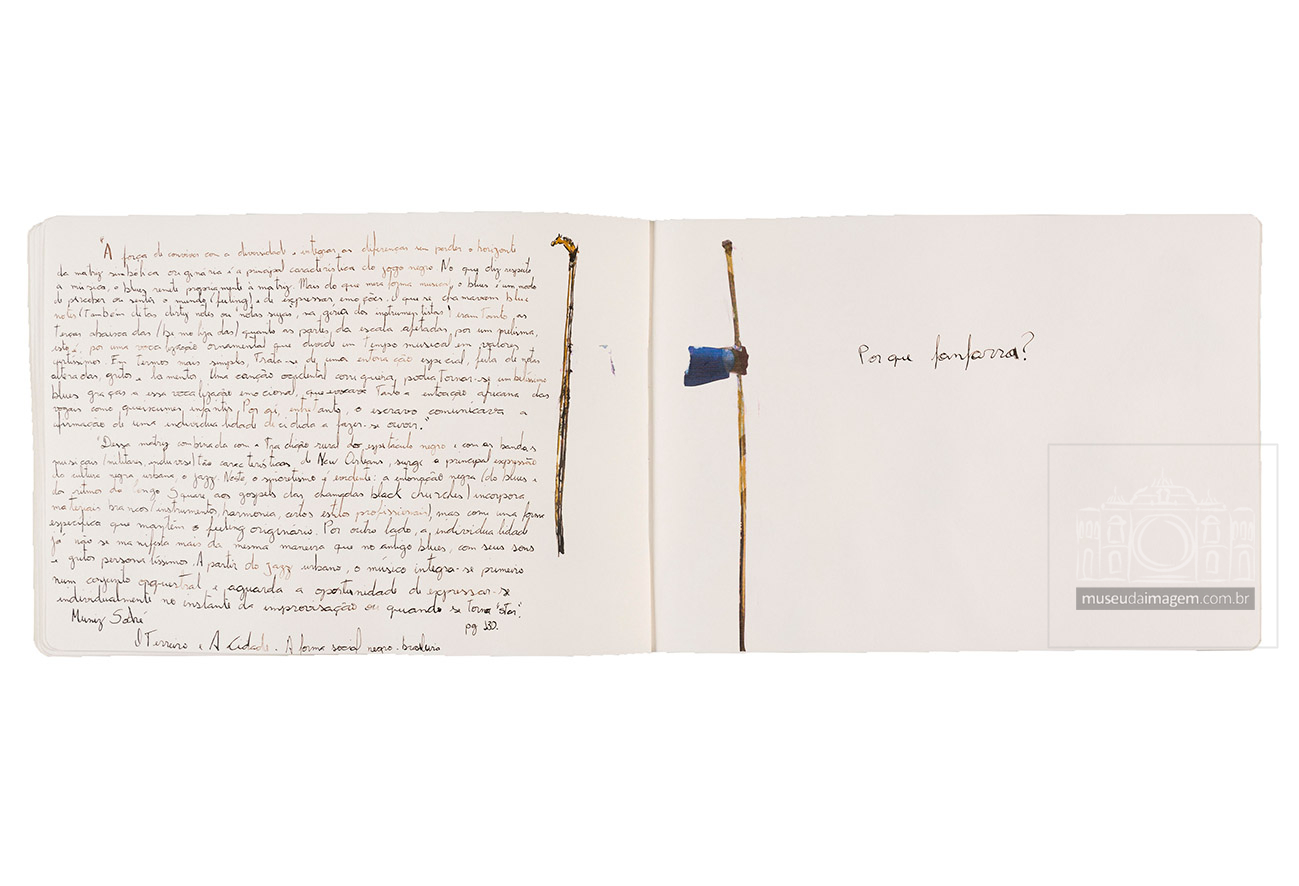 "A força de conviver com a diversidade e integrar as diferenças sem perder o horizonte
da matriz simbólica originária é a principal característica do jogo negro. No que diz respeito
à música, o blues remete propriamente à matriz. Mais do que mera forma musical, o blues é um modo
de perceber ou sentir o mundo (feeling) e de expressar emoções. O que se chamavam blue
notes (também ditas dirty notes ou 'notas sujas', na gíria dos instrumentistas) eram tanto as
terças abaixadas (bemolizadas) quanto as partes da escala afetadas por um melisma,
isto é, por uma vocalização ornamental que divide um tempo musical em valores
curtíssimos. Em termos mais simples, trata-se de uma entonação especial, feita de notas
alteradas, gritos e lamentos. Uma canção ocidental corriqueira podia tornar-se um belíssimo
blues graças a essa vocalização emocional, que evocava tanto a entoação africana das
vogais como queixumes infantis. Por aí, entretanto, o escravo comunicava a
afirmação de uma individualidade decidida a fazer-se ouvir."
"Dessa matriz combinada com a tradição rural do espetáculo negro e com as bandas
musicais (militares, inclusive) tão características de New Orleans, surge a principal expressão
da cultura negra urbana, o jazz. Neste, o sincretismo é evidente: a entonação negra (do blues e
do ritmo do Congo Square aos gospels das chamadas black churches) incorpora
materiais brancos (instrumentos, harmonia, certos estilos profissionais), mas com uma forma
específica que mantém o feeling originário. Por outro lado, a individualidade
já não se manifesta mais da mesma maneira que no antigo blues, com seus sons
e gritos personalíssimos. A partir do jazz urbano, o músico integra-se primeiro
num conjunto orquestral e aguarda a oportunidade de expressar-se
individualmente no instante da improvisação ou quando se torna 'star'."
Muniz Sodré
pg 130.
O Terreiro e A Cidade. A forma social negro-brasileira
Por que fanfarra?
museudaimagem.com.br